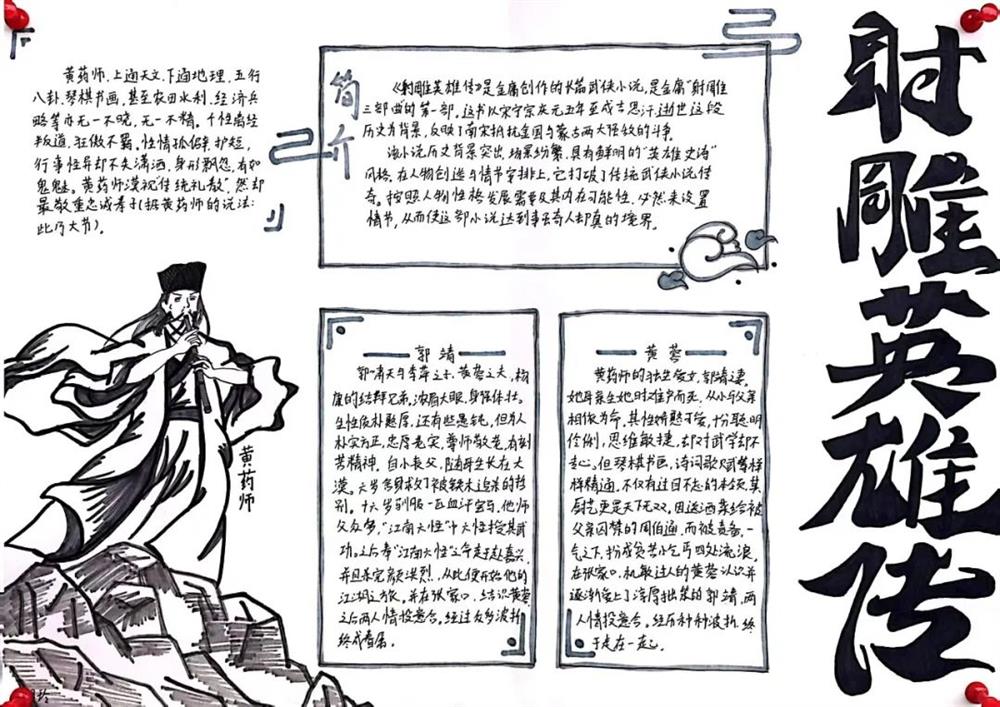 射雕英雄传
简介
《射雕英雄传》是金庸创作的长篇武侠小说,是金庸"射雕
三部曲"的第一部。这书以宋宁宗庆元五年至成吉思汗逝世这段
历史为背景,反映了南宋抵抗金国与蒙古两大强敌的斗争。
该小说历史背景突出,场景纷繁,具有鲜明的"英雄史诗"
风格,在人物创造与情节安排上,它打破了传统武侠小说传
奇,按照人物性格发展需要及其内在可能性、必然来设置
情节,从而使这部小说达到事奇人却真的境界。
黄药师,上通天文,下通地理,五行
八卦、琴棋书画,甚至农田水利、经济兵
略等亦无一不晓,无一不精。个性离经
叛道,狂傲不羁。性情孤僻护短,
行事性异却不失潇洒,身形飘忽,有如
鬼魅。黄药师漠视传统礼教",然却
最敬重忠诚孝子(据黄药师的说法:
此乃大节)。
黄药师
郭靖
郭啸天与李萍之子,黄蓉之夫,杨
康的结拜兄弟,浓眉大眼,身强体壮。
生性质朴憨厚,还有些愚钝,但为人
朴实方正,忠厚老实,尊师敬老,有刻
苦精神。自小丧父,随母生长在大
漠。六岁
别。十六岁到 一匹血汗宝马,他师
父众多,"江南六怪"十六怪授其武
功。之后奉"江南六怪"之命走赴嘉兴,
并且杀完颜洪烈,从此便开始他的
江湖之旅,并在张家口,结识黄蓉
之后两人情投意合。经过众多波折
终成眷属。
黄蓉
黄药师的独生爱女,郭靖之妻。
她母亲生她时难产而死,从小与父亲
相依为命,其性娇憨可爱,扮聪明
伶俐,思维敏捷,却对武学却不
专心,但琴棋书画,诗词歌赋等样
样精通,不仅有过目不忘的本领,其
厨艺更是天下无双,因送酒菜给被
父亲囚禁的周伯通,而被责备,一
气之下,扮成贫苦小乞丐四处流浪。
在张家口,机敏过人的黄蓉认识并
逐渐爱上了浑厚拙朴的郭靖,两
人情投意合,经历种种波折,终
于走在一起。